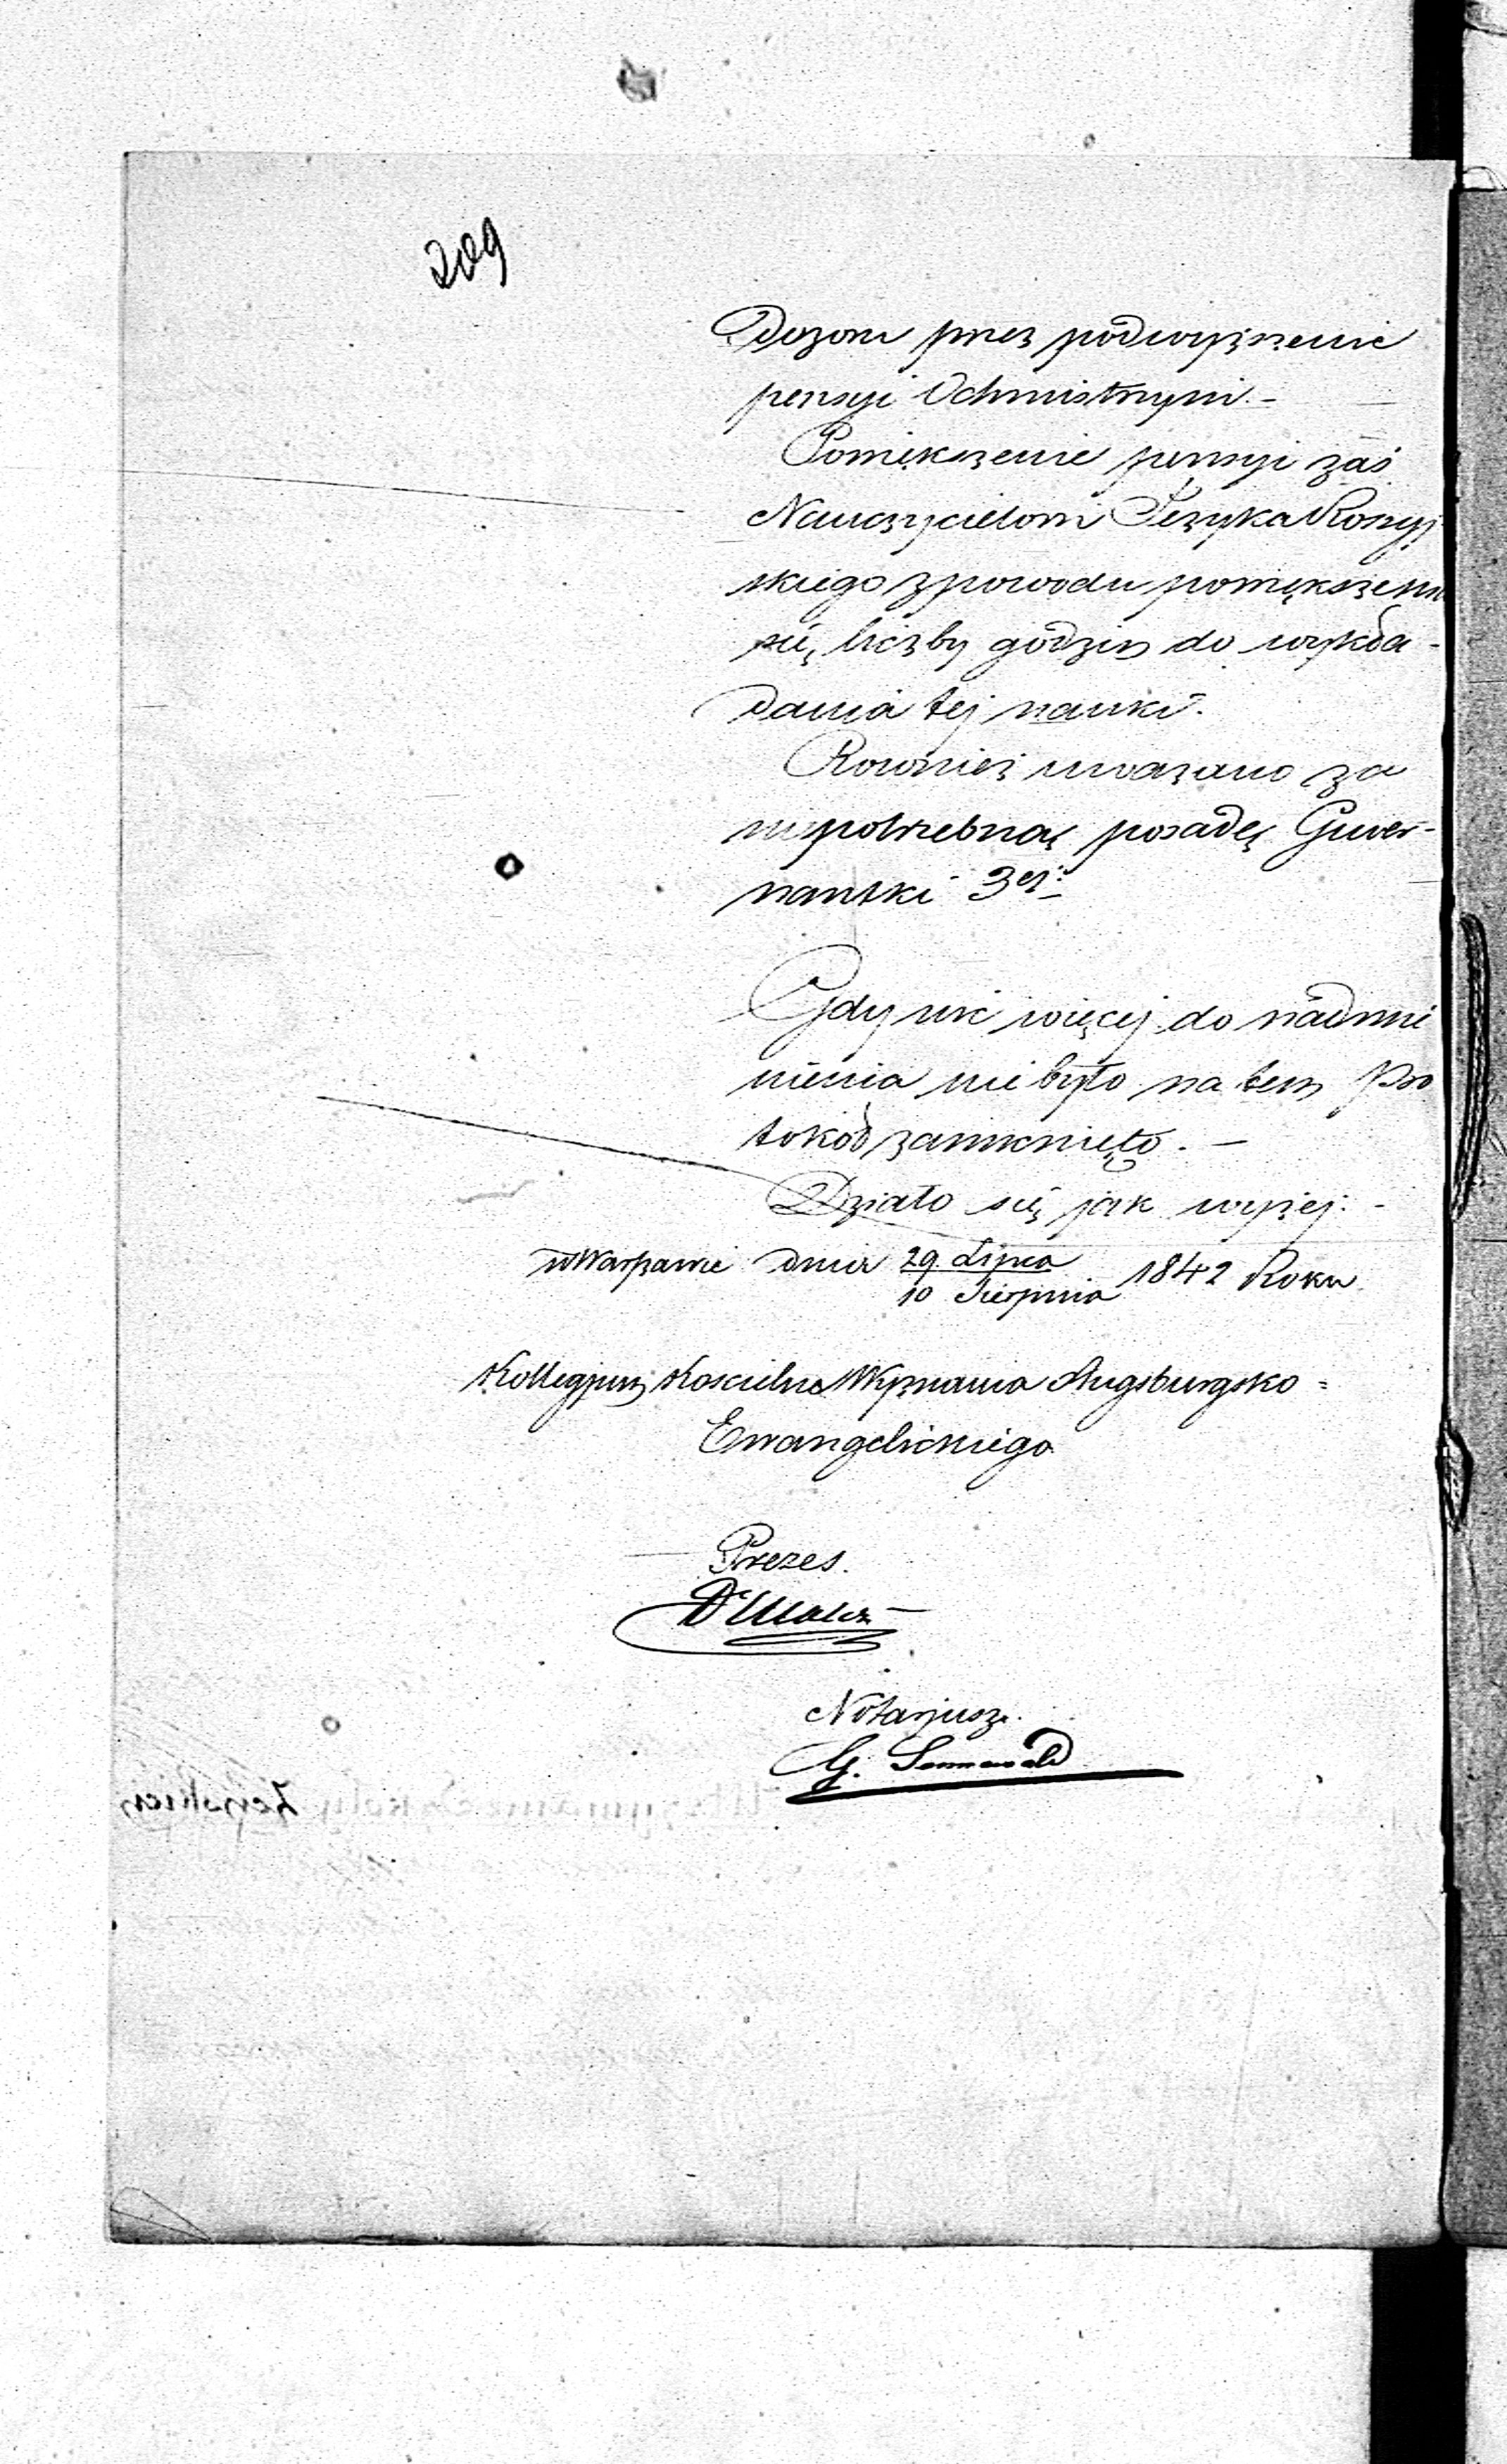 209
Dozoru przez podwyższenie
pensyi Ochmistrzyni. -
Powiększenie pensyi zaś
Nauczycielom Języka Rossyj-
skiego z powodu powiększenia
się liczby godzin do wykła-
dania tej nauki.
Rownież uważano za
niepotrzebną posadę Guwer-
nantki 3ej. -
Gdy nic więcej do nadmie
nienia nie było na tem Pro
tokół zamknięto. -
Działo się jak wyżej. -
w Warszawie dnia 29 Lipca / 10 Sierpnia 1842 Roku
Kollegjum Koscielne Wyznania Augsburgsko =
Ewangelickiego
Prezes.
Dr Malcz
Notarjusz.
G. Sennewald